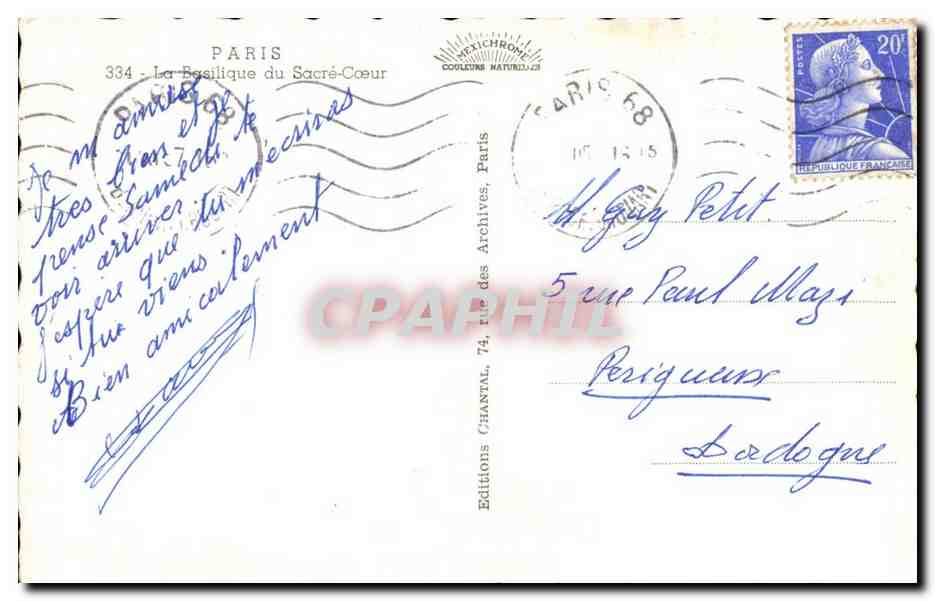 PARIS
334 - La Basilique du Sacré-Cœur
MEXICHROME
COULEURS NATURELLES
POSTES
20F
REPUBLIQUE FRANÇAISE
PARIS 68
PARIS 68
15
Je m'amuse
très bien et je
pense Samedi te
voir arriver
j'espère que tu m'écriras
si tu viens.
Bien amicalement
Editions CHANTAL, 74, rue des Archives, Paris
M. Guy Petit.
5 rue Paul Mazi
Perigueux
Dordogne
CPAPHIL